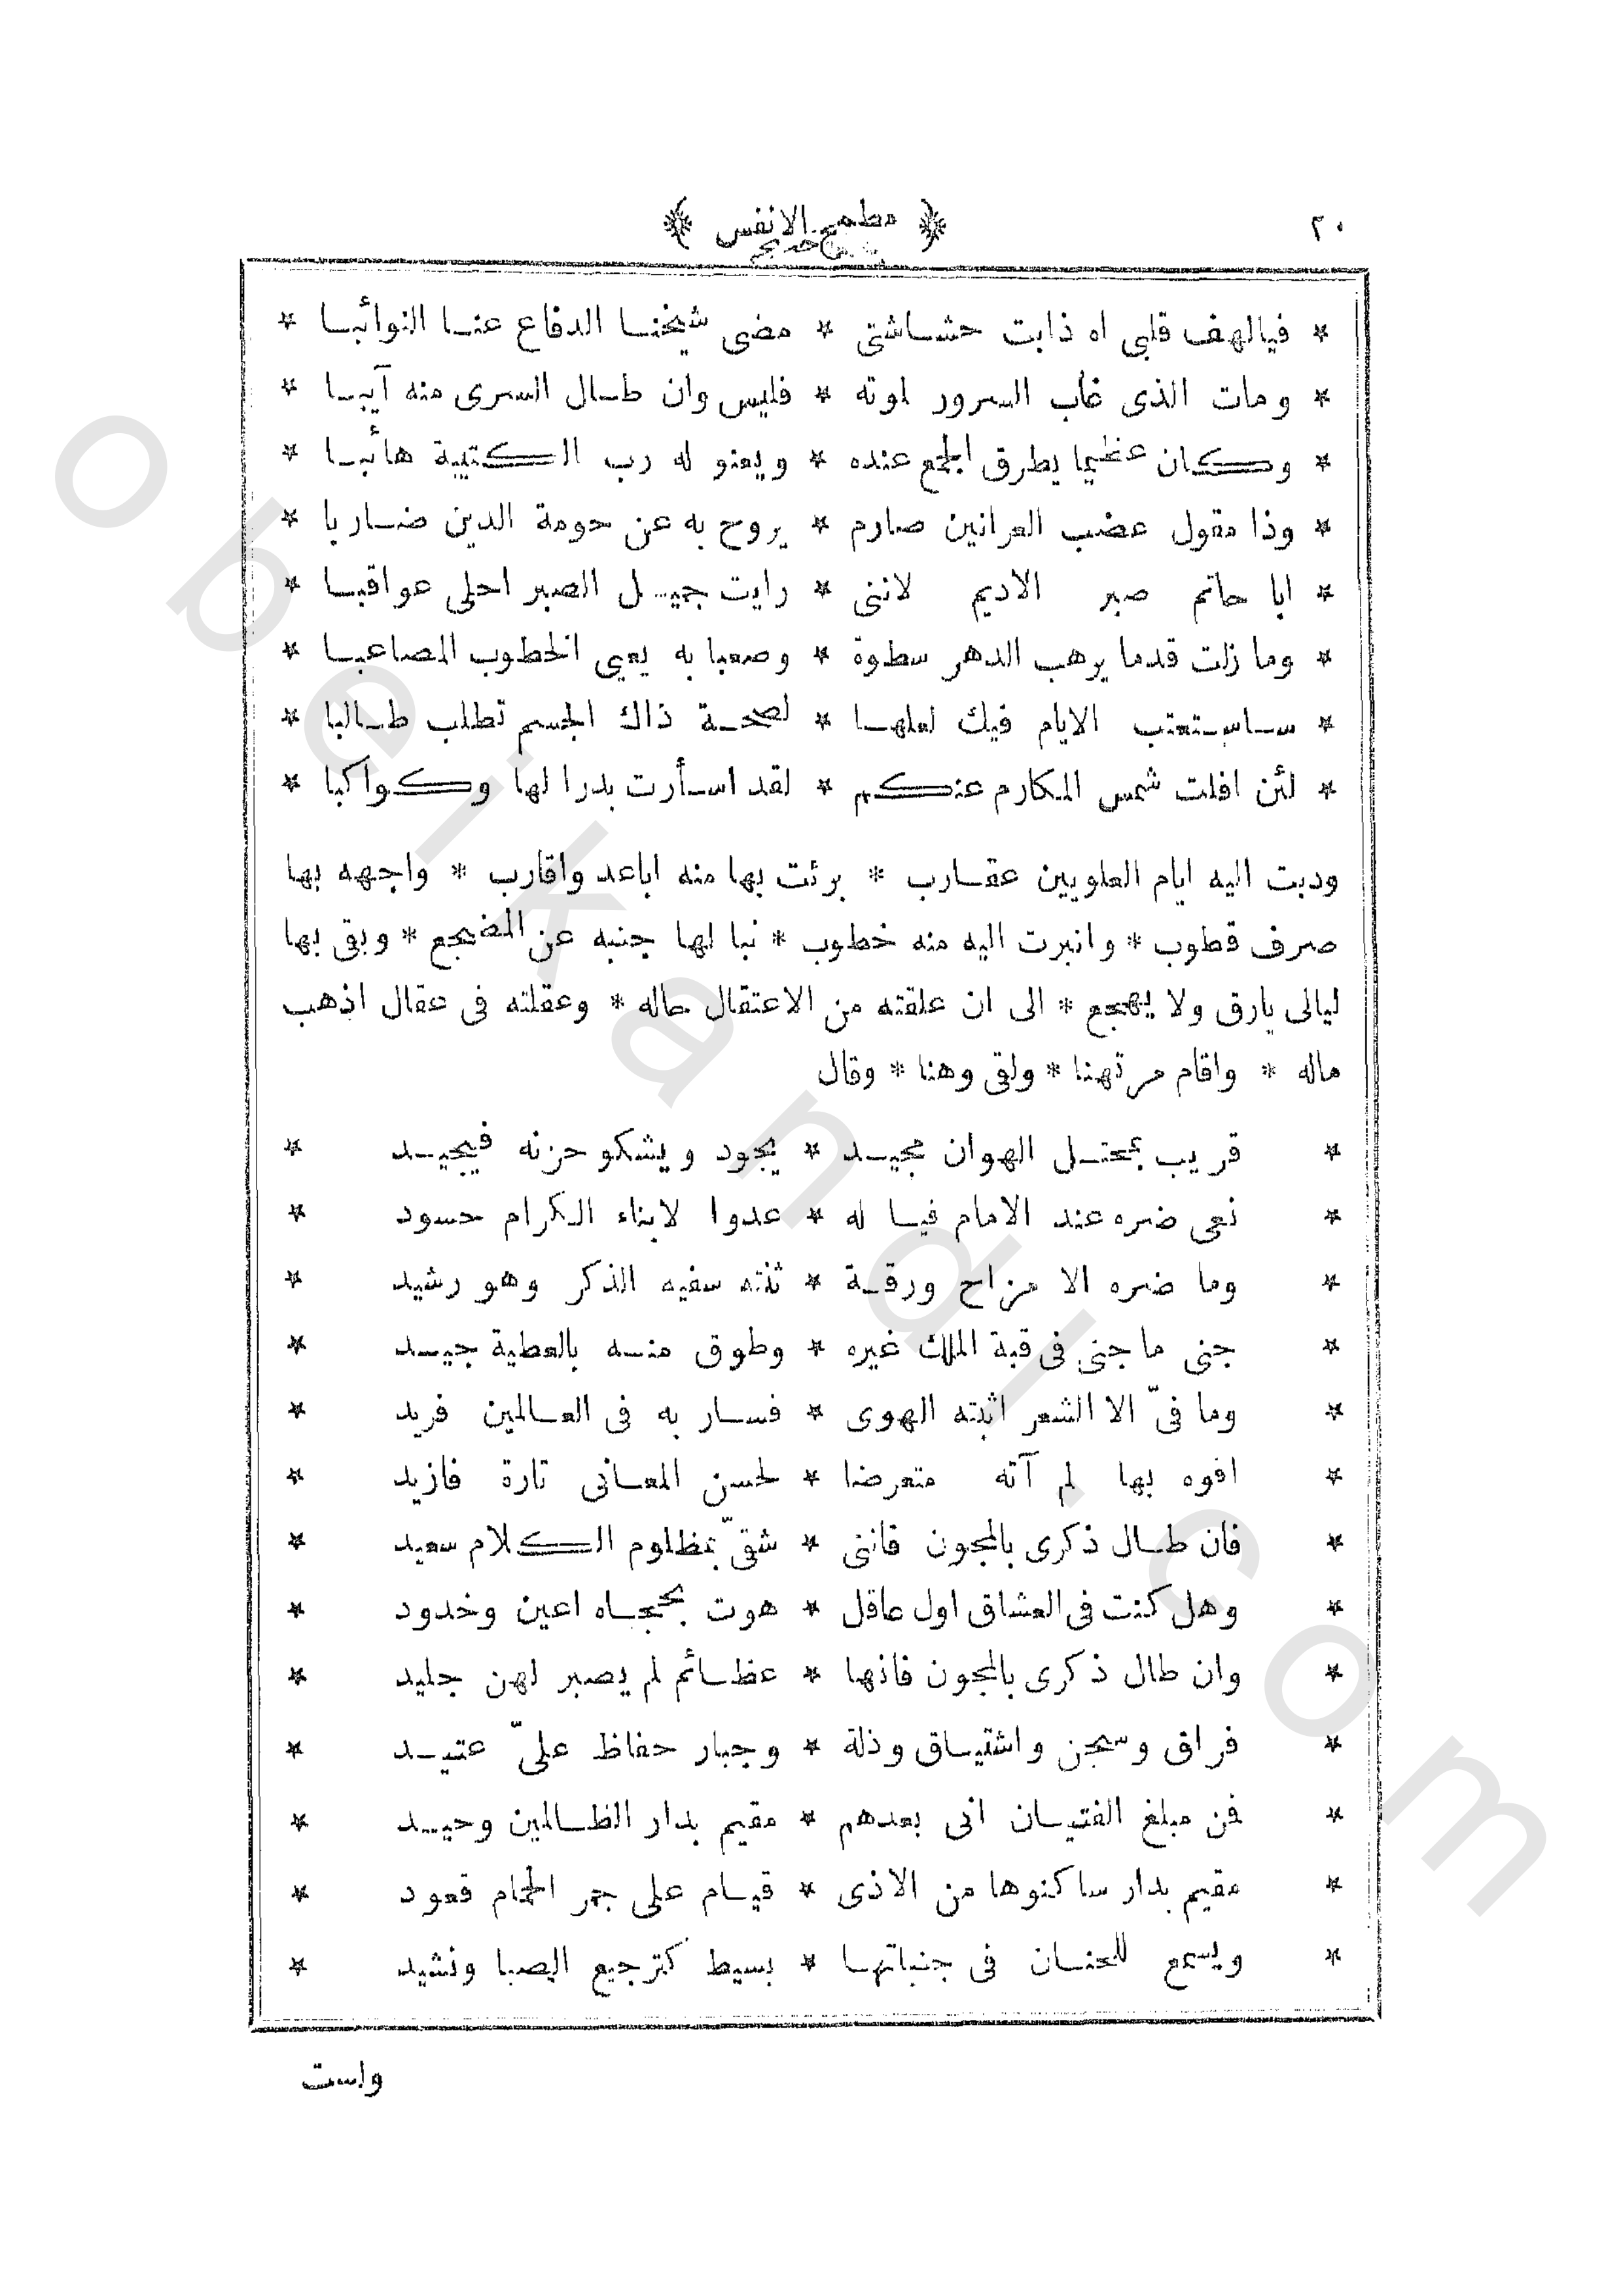 ٢٠ ﴿ مطمح الانفس ﴾
* فيالهف قلبى اه ذابت حشاشتى * مضى شيخنا الدفاع عنا النوائبا *
* ومات الذى غاب السرور لموته * فليس وان طال السرى منه آيبا *
* وكان عظيما يطرق الجمع عنده * ويعنو له رب الكتيبة هائبا *
* وذا مقول عضب الغرانين صارم * يروح به عن حومة الدين ضاربا *
* ابا حاتم صبر الاديم لاننى * رايت جميل الصبر احلى عواقبا *
* وما زلت قدما يرهب الدهر سطوة * وصعبا به يعيى الخطوب المصاعبا *
* ساستعتب الايام فيك لعلها * لصحة ذاك الجسم تطلب طالبا *
* لئن افلت شمس المكارم عنكم * لقد اسأرت بدرا لها وكواكبا *
ودبت اليه ايام العلويين عقارب * برئت بها منه اباعد واقارب * واجهه بها
صرف قطوب * وانبرت اليه منه خطوب * نبا لها جنبه عن المضجع * وبقى بها
ليالى يارق ولا يهجع * الى ان علقته من الاعتقال حاله * وعقلته فى عقال اذهب
ماله * واقام مرتهنا * ولقى وهنا * وقال
* قريب بمحتل الهوان مجيد * يجود ويشكو حزنه فيجيد *
* نعى ضره عند الامام فيا له * عدوا لابناء الكرام حسود *
* وما ضره الا مزاح ورقة * ثنته سفيه الذكر وهو رشيد *
* جنى ما جنى فى قبة الملك غيره * وطوق منه بالعطية جيد *
* وما فىّ الا الشعر اثبته الهوى * فسار به فى العالمين فريد *
* افوه بها لم آته متعرضا * لحسن المعانى تارة فازيد *
* فان طال ذكرى بالمجون فاننى * شقىّ بمظلوم الكلام سعيد *
* وهل كنت فى العشاق اول عاقل * هوت بحجاه اعين وخدود *
* وان طال ذكرى بالمجون فانها * عظائم لم يصبر لهن جليد *
* فراق وسجن واشتياق وذلة * وجبار حفاظ علىّ عتيد *
* فمن مبلغ الفتيان انى بعدهم * مقيم بدار الظالمين وحيد *
* مقيم بدار ساكنوها من الاذى * قيام على جمر الحمام قعود *
* ويسمع للحنان فى جنباتها * بسيط كترجيع الصبا ونشيد *
واست
obeikandl.com